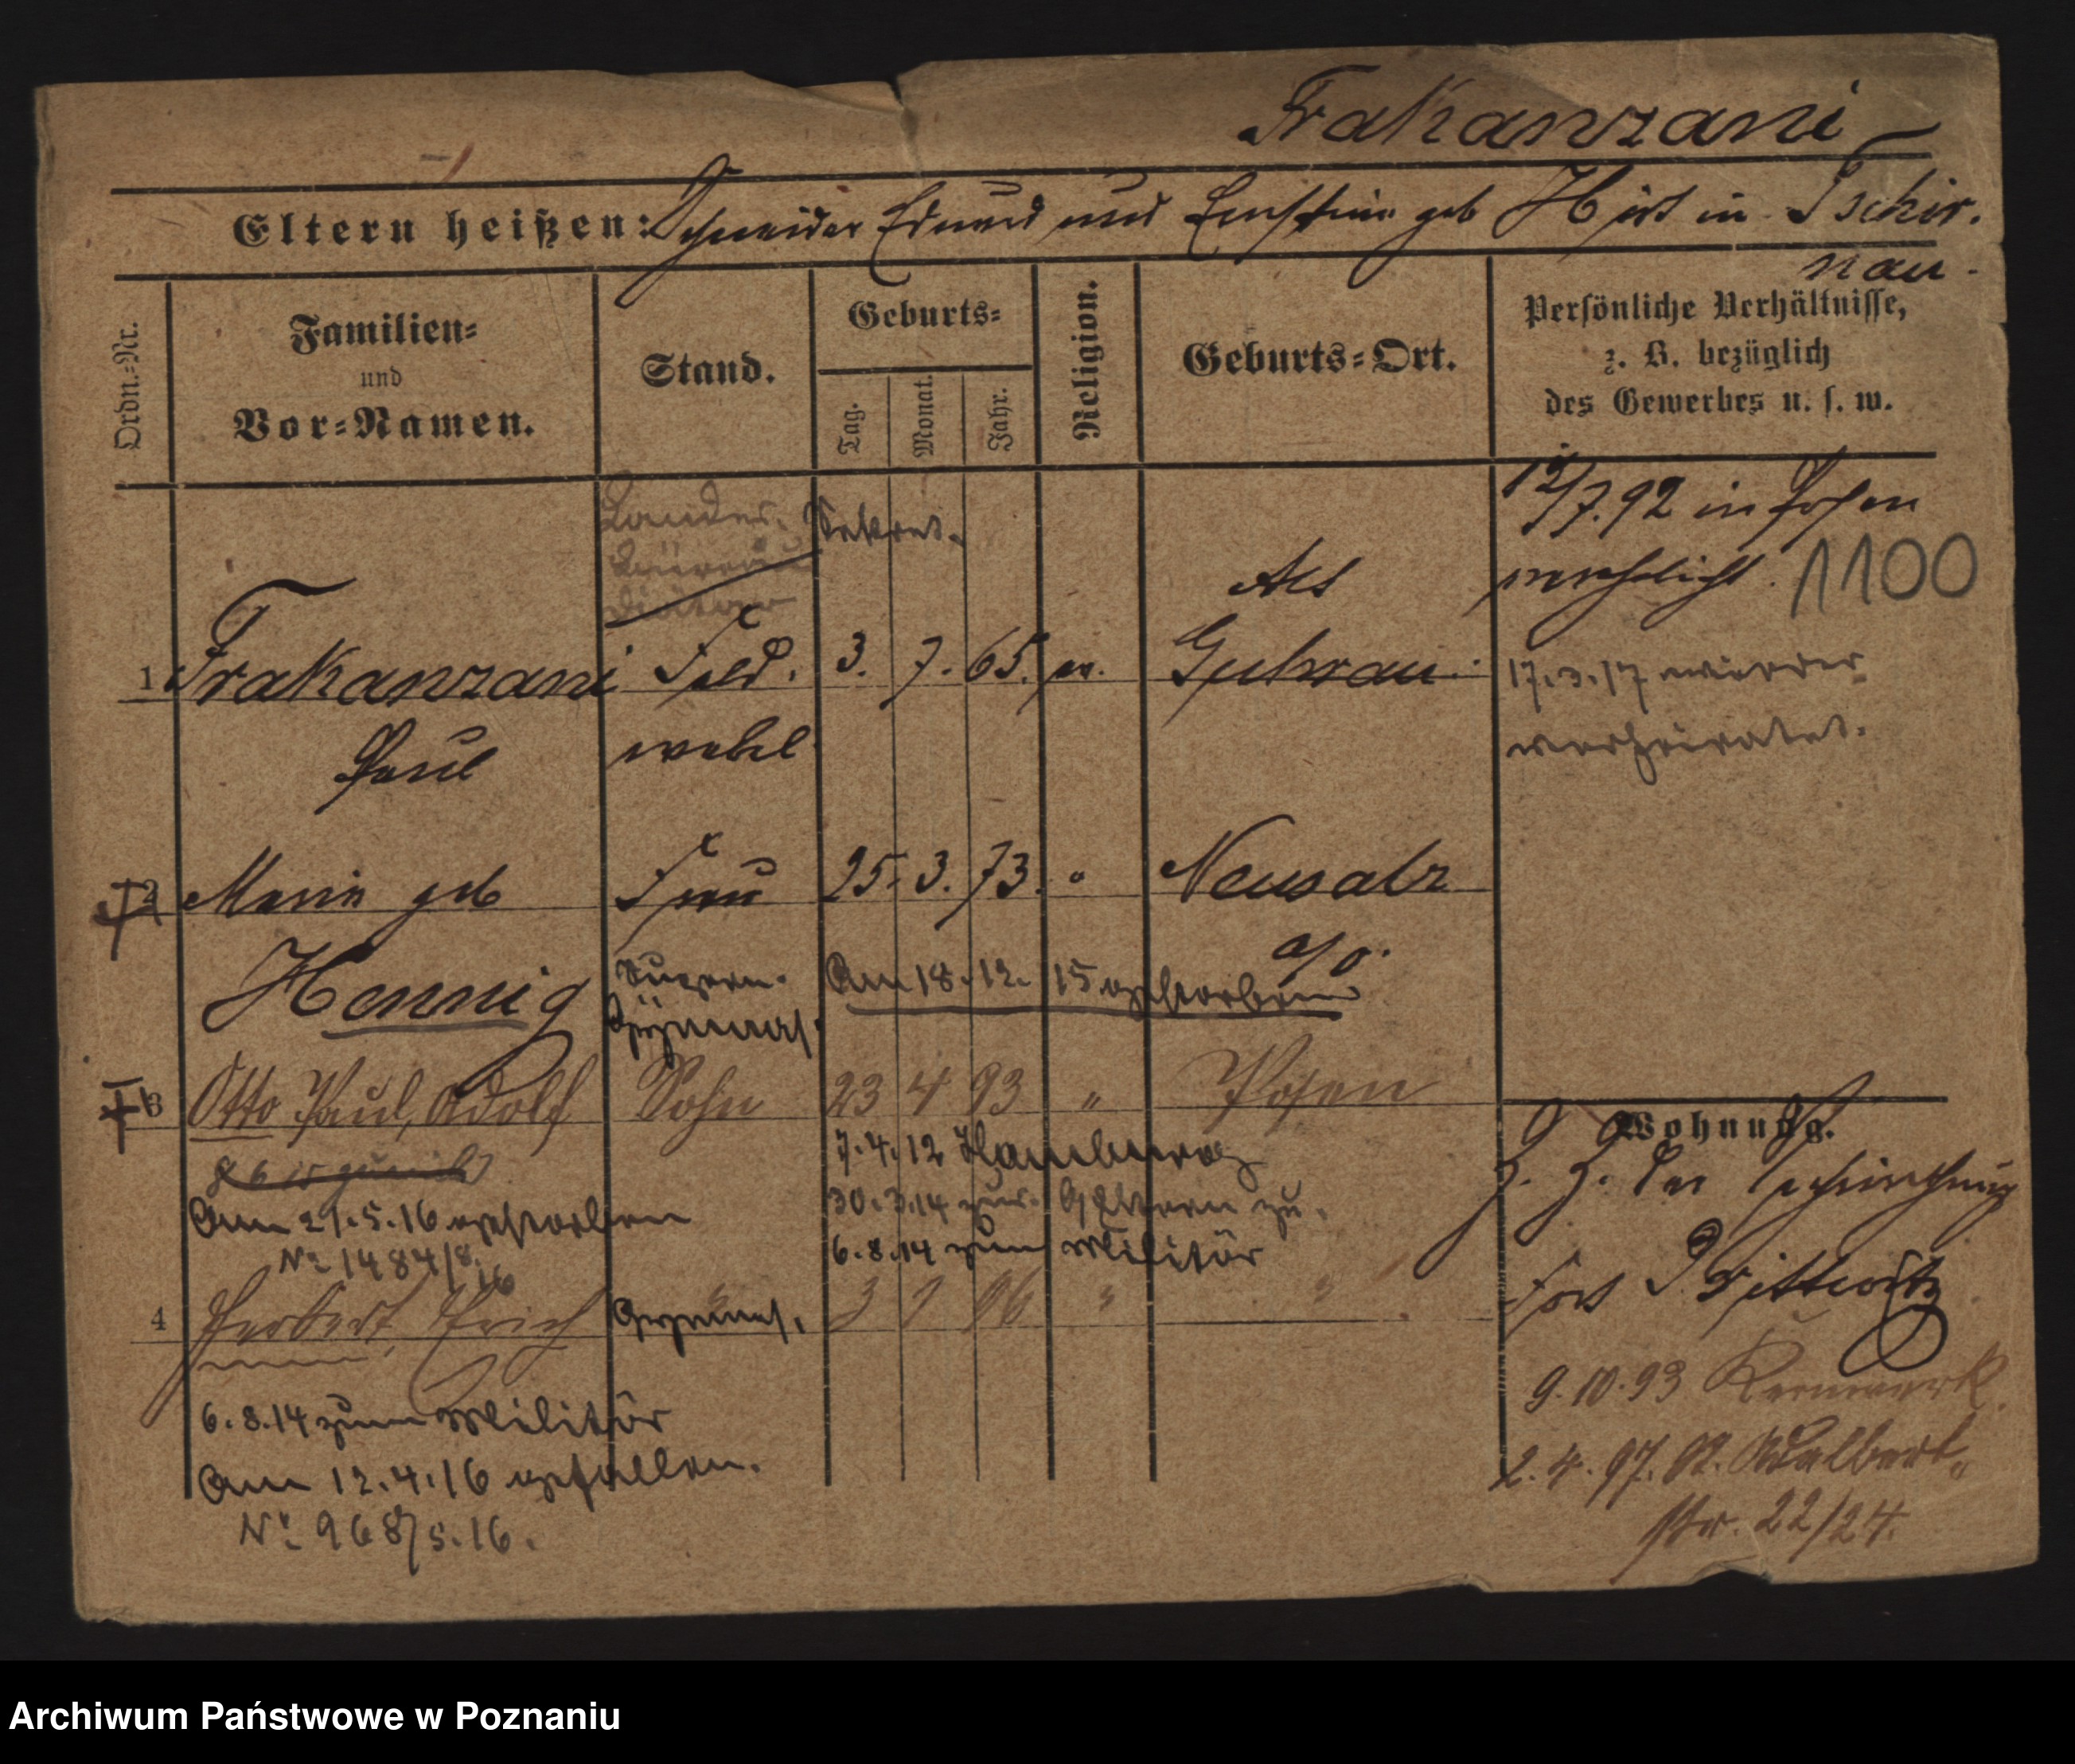 Frakanzani
Eltern heißen: Schneider Eduard und Ernstine geb Hirt in Tschir.
nau.
Ordn.-Nr.
Familien-
und
Vor-Namen.
Stand.
Geburts-
Tag.
Monat.
Jahr.
Religion.
Geburts-Ort.
Persönliche Verhältnisse,
z. B. bezüglich
des Gewerbes u. s. w.
Landes- Sekret.
Büreau
Diätar
12/7.92 in Posen
verehelicht. 1100
1 Frakanzani Feld. 3. 7. 65. ev. Alt Guhrau.
Paul webel
17.3.17 wieder
verheiratet.
2 Marie geb Frau 25. 3. 73. " Neusalz
a/O.
Hennig
Gymnas.
Am 18.12.15 gestorben
3 Otto Paul, Adolf Sohn 23 4 93 " Posen
7.4.12 Hamburg
Am 21.5.16 gestorben
30.3.14 zur. Eltern zu.
No 1484/8.16
6.8.14 zum Militär
4 Herbert, Erich " Gymnas. 3 1 96 " "
6.8.14 zum Militär
Am 12.4.16 gefallen.
No 968/5.16.
Wohnung.
Fort Prittwitz
9.10.93 Kernwerk
2.4.97. Adalbert-
str. 22/24.
Archiwum Państwowe w Poznaniu